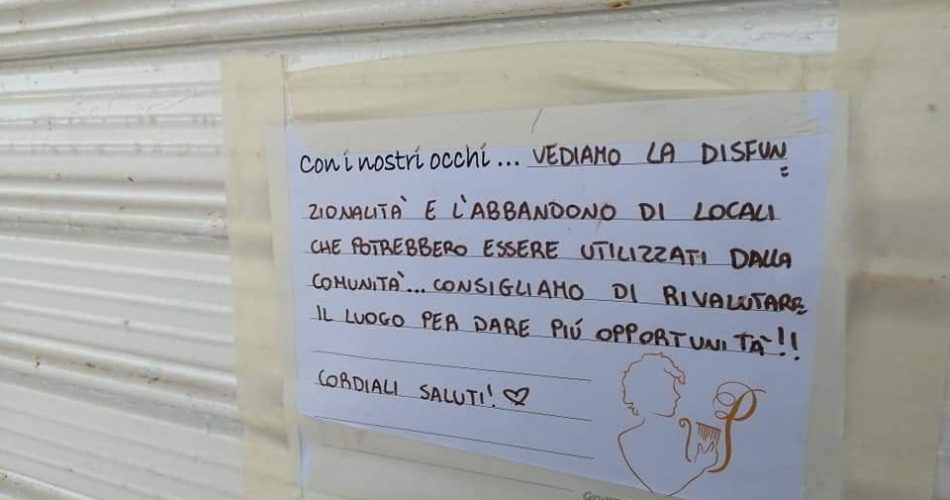 Con i nostri occhi... VEDIAMO LA DISFUN=
ZIONALITÀ E L'ABBANDONO DI LOCALI
CHE POTREBBERO ESSERE UTILIZZATI DALLA
COMUNITÀ... CONSIGLIAMO DI RIVALUTARE
IL LUOGO PER DARE PIÚ OPPORTUNITÀ!!
CORDIALI SALUTI! ♡